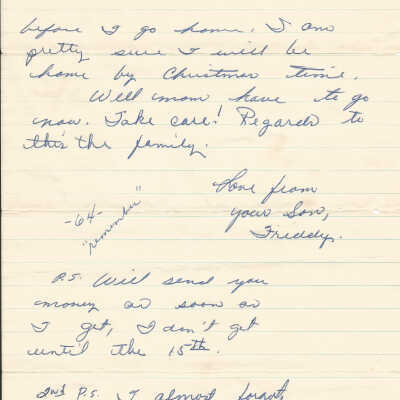 before I go home. I am
pretty sure I will be
home by Christmas time.
Well mom have to go
now. Take care! Regards to
this the family.
Love from
your Son,
Freddy.
-64-
"remember"
P.S. Will send you
money as soon as
I get, I don't get
until the 15th.
2nd P.S. I almost forgot,